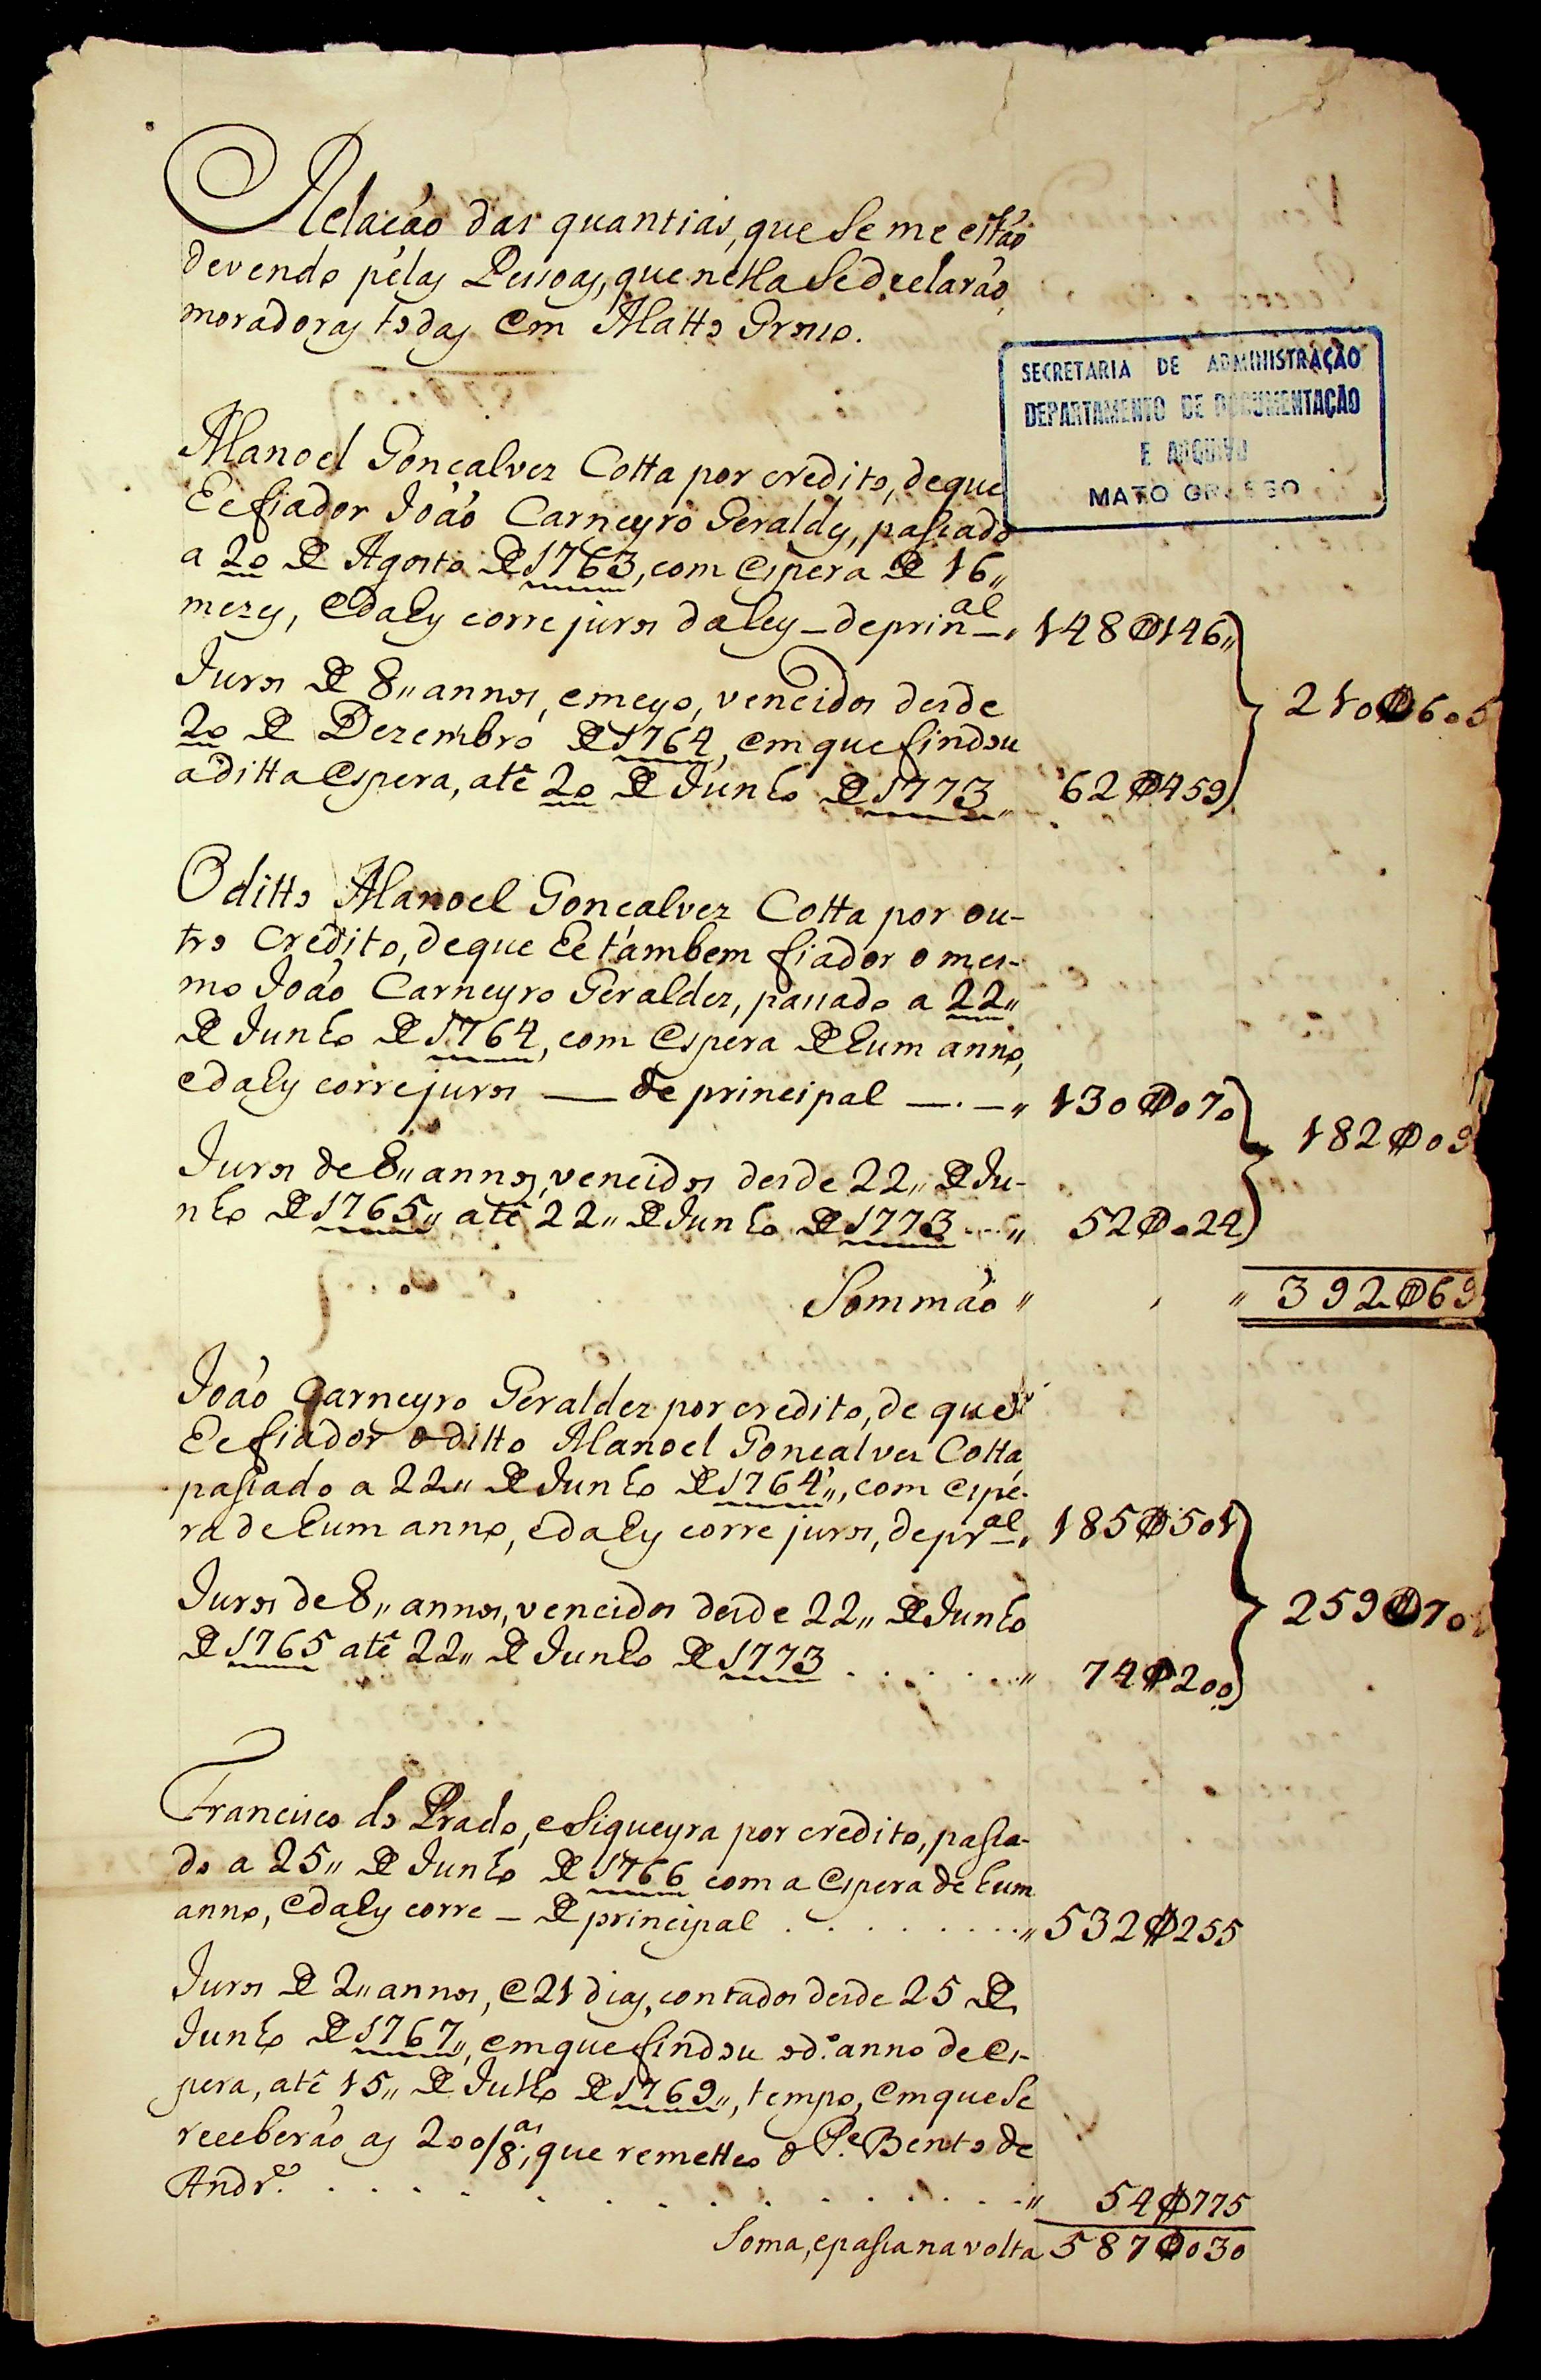 Relação das quantias, que se me estão
devendo pelas Pessoas, que nella Se declarão,
moradoras todas em Matto Grosso.
SECRETARIA DE ADMINISTRAÇÃO
DEPARTAMENTO DE DOCUMENTAÇÃO
E ARQUIVO
MATO GROSSO
Manoel Gonçalvez Cotta por credito, de que
he fiador João Carneyro Geraldes, passado
a 20 de Agosto de 1763, com espera de 16,,
mezes, e dahy corre juros da Ley — de prin.al 148$146,,
Juros de 8,, annos, e meyo, vencidos desde
20 de Dezembro de 1764, em que findou
a ditta espera, até 20 de Junho de 1773,, 62$459
210$605
O ditto Manoel Gonçalvez Cotta por ou-
tro Credito, de que he tambem fiador o mes-
mo João Carneyro Geraldez, passado a 22,,
de Junho de 1764, com espera de hum anno,
e dahy corre juros — de principal —.—,, 130$070
Juros de 8,, annos, vencidos desde 22,, de Ju-
nho de 1765,, até 22,, de Junho de 1773 ...,, 52$024
182$09
Sommão ,, ,, 392$69
João Carneyro Geraldez por credito, de que
he fiador o ditto Manoel Gonçalvez Cotta
passado a 22,, de Junho de 1764,, com espe-
ra de hum anno, e dahy corre juros, de pr.al 185$501
Juros de 8,, annos, vencidos desde 22,, de Junho
de 1765 até 22,, de Junho de 1773 . . . . . ,, 74$200
259$70
Francisco do Prado, e Siqueyra por credito, passa-
do a 25,, de Junho de 1766 com a espera de hum
anno, e dahy corre — de principal . . . . . . . ,, 532$255
Juros de 2,, annos, e 21 dias, contados desde 25 de
Junho de 1767,, em que findou o d.o anno de es-
pera, até 15,, de Julho de 1769,, tempo, em que Se
receberão as 200/8.as, que remetteo o P.e Bento de
Andr.e . . . . . . . . . . . . . ,, 54$775
Soma, e passa na volta 587$030